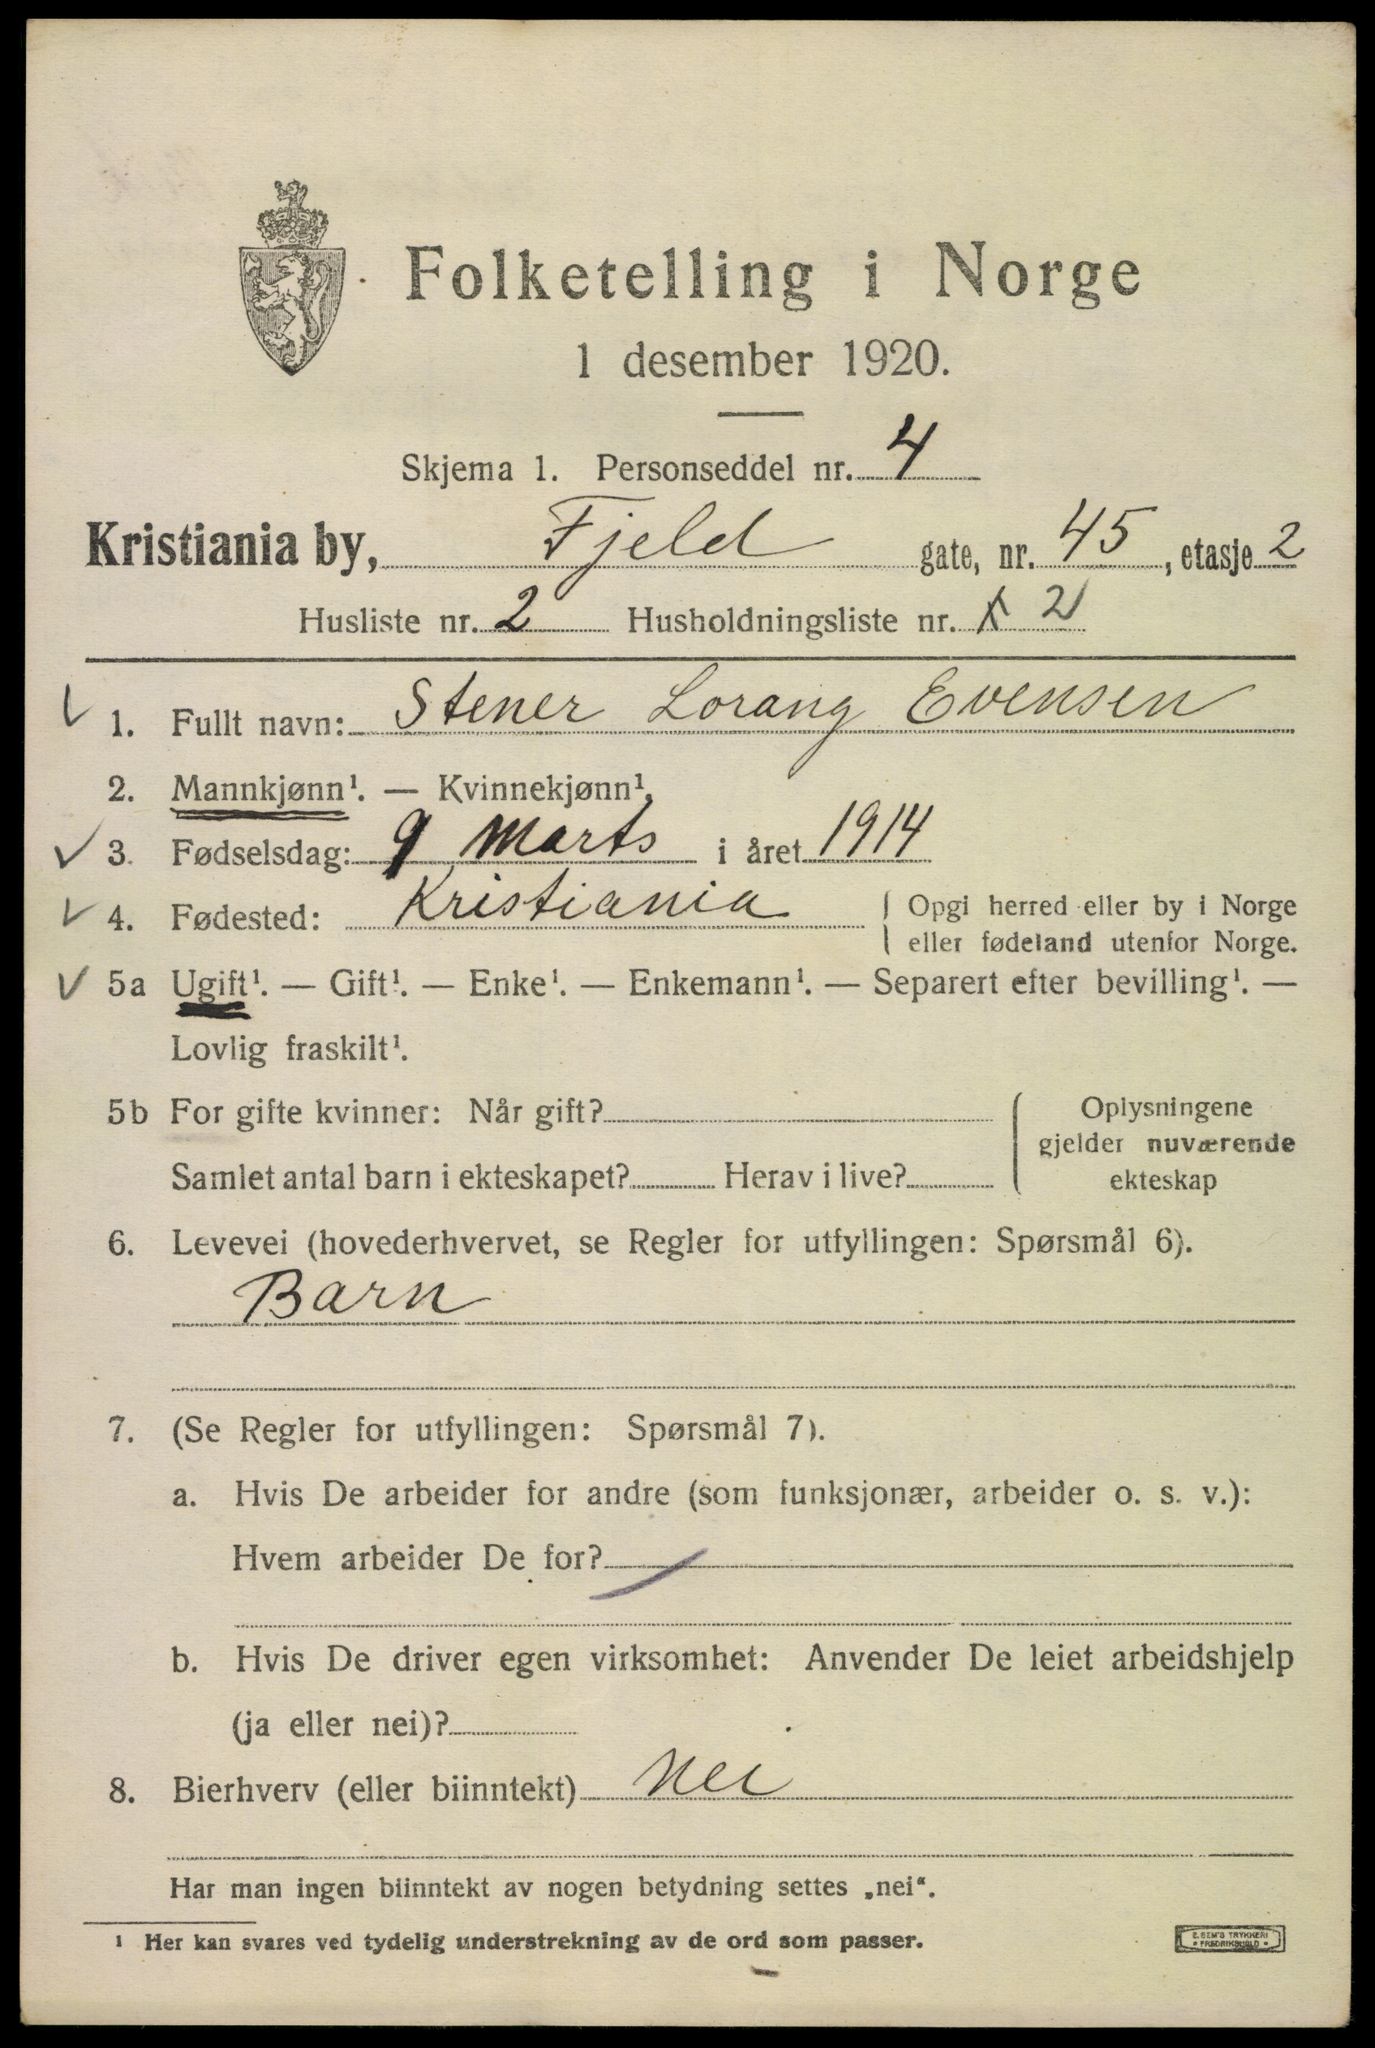 Folketelling i Norge
1 desember 1920.
Skjema 1. Personseddel nr. 4
Kristiania by, Fjeld gate, nr. 45, etasje 2
Husliste nr. 2 Husholdningsliste nr. 2
1. Fullt navn: Stener Lorang Evensen
2. Mannkjønn¹. — Kvinnekjønn¹.
3. Fødselsdag: 9 Marts i året 1914
4. Fødested: Kristiania Opgi herred eller by i Norge
eller fødeland utenfor Norge.
5a Ugift¹. — Gift¹. — Enke¹. — Enkemann¹. — Separert efter bevilling¹. —
Lovlig fraskilt¹.
5b For gifte kvinner: Når gift? Oplysningene
gjelder nuværende
Samlet antal barn i ekteskapet? Herav i live? ekteskap
6. Levevei (hovederhvervet, se Regler for utfyllingen: Spørsmål 6).
Barn
7. (Se Regler for utfyllingen: Spørsmål 7).
a. Hvis De arbeider for andre (som funksjonær, arbeider o. s. v.):
Hvem arbeider De for?
b. Hvis De driver egen virksomhet: Anvender De leiet arbeidshjelp
(ja eller nei)?
8. Bierhverv (eller biinntekt) Nei
Har man ingen biinntekt av nogen betydning settes „nei“.
¹ Her kan svares ved tydelig understrekning av de ord som passer.
E. SEM'S TRYKKERI
• FREDRIKSHALD •